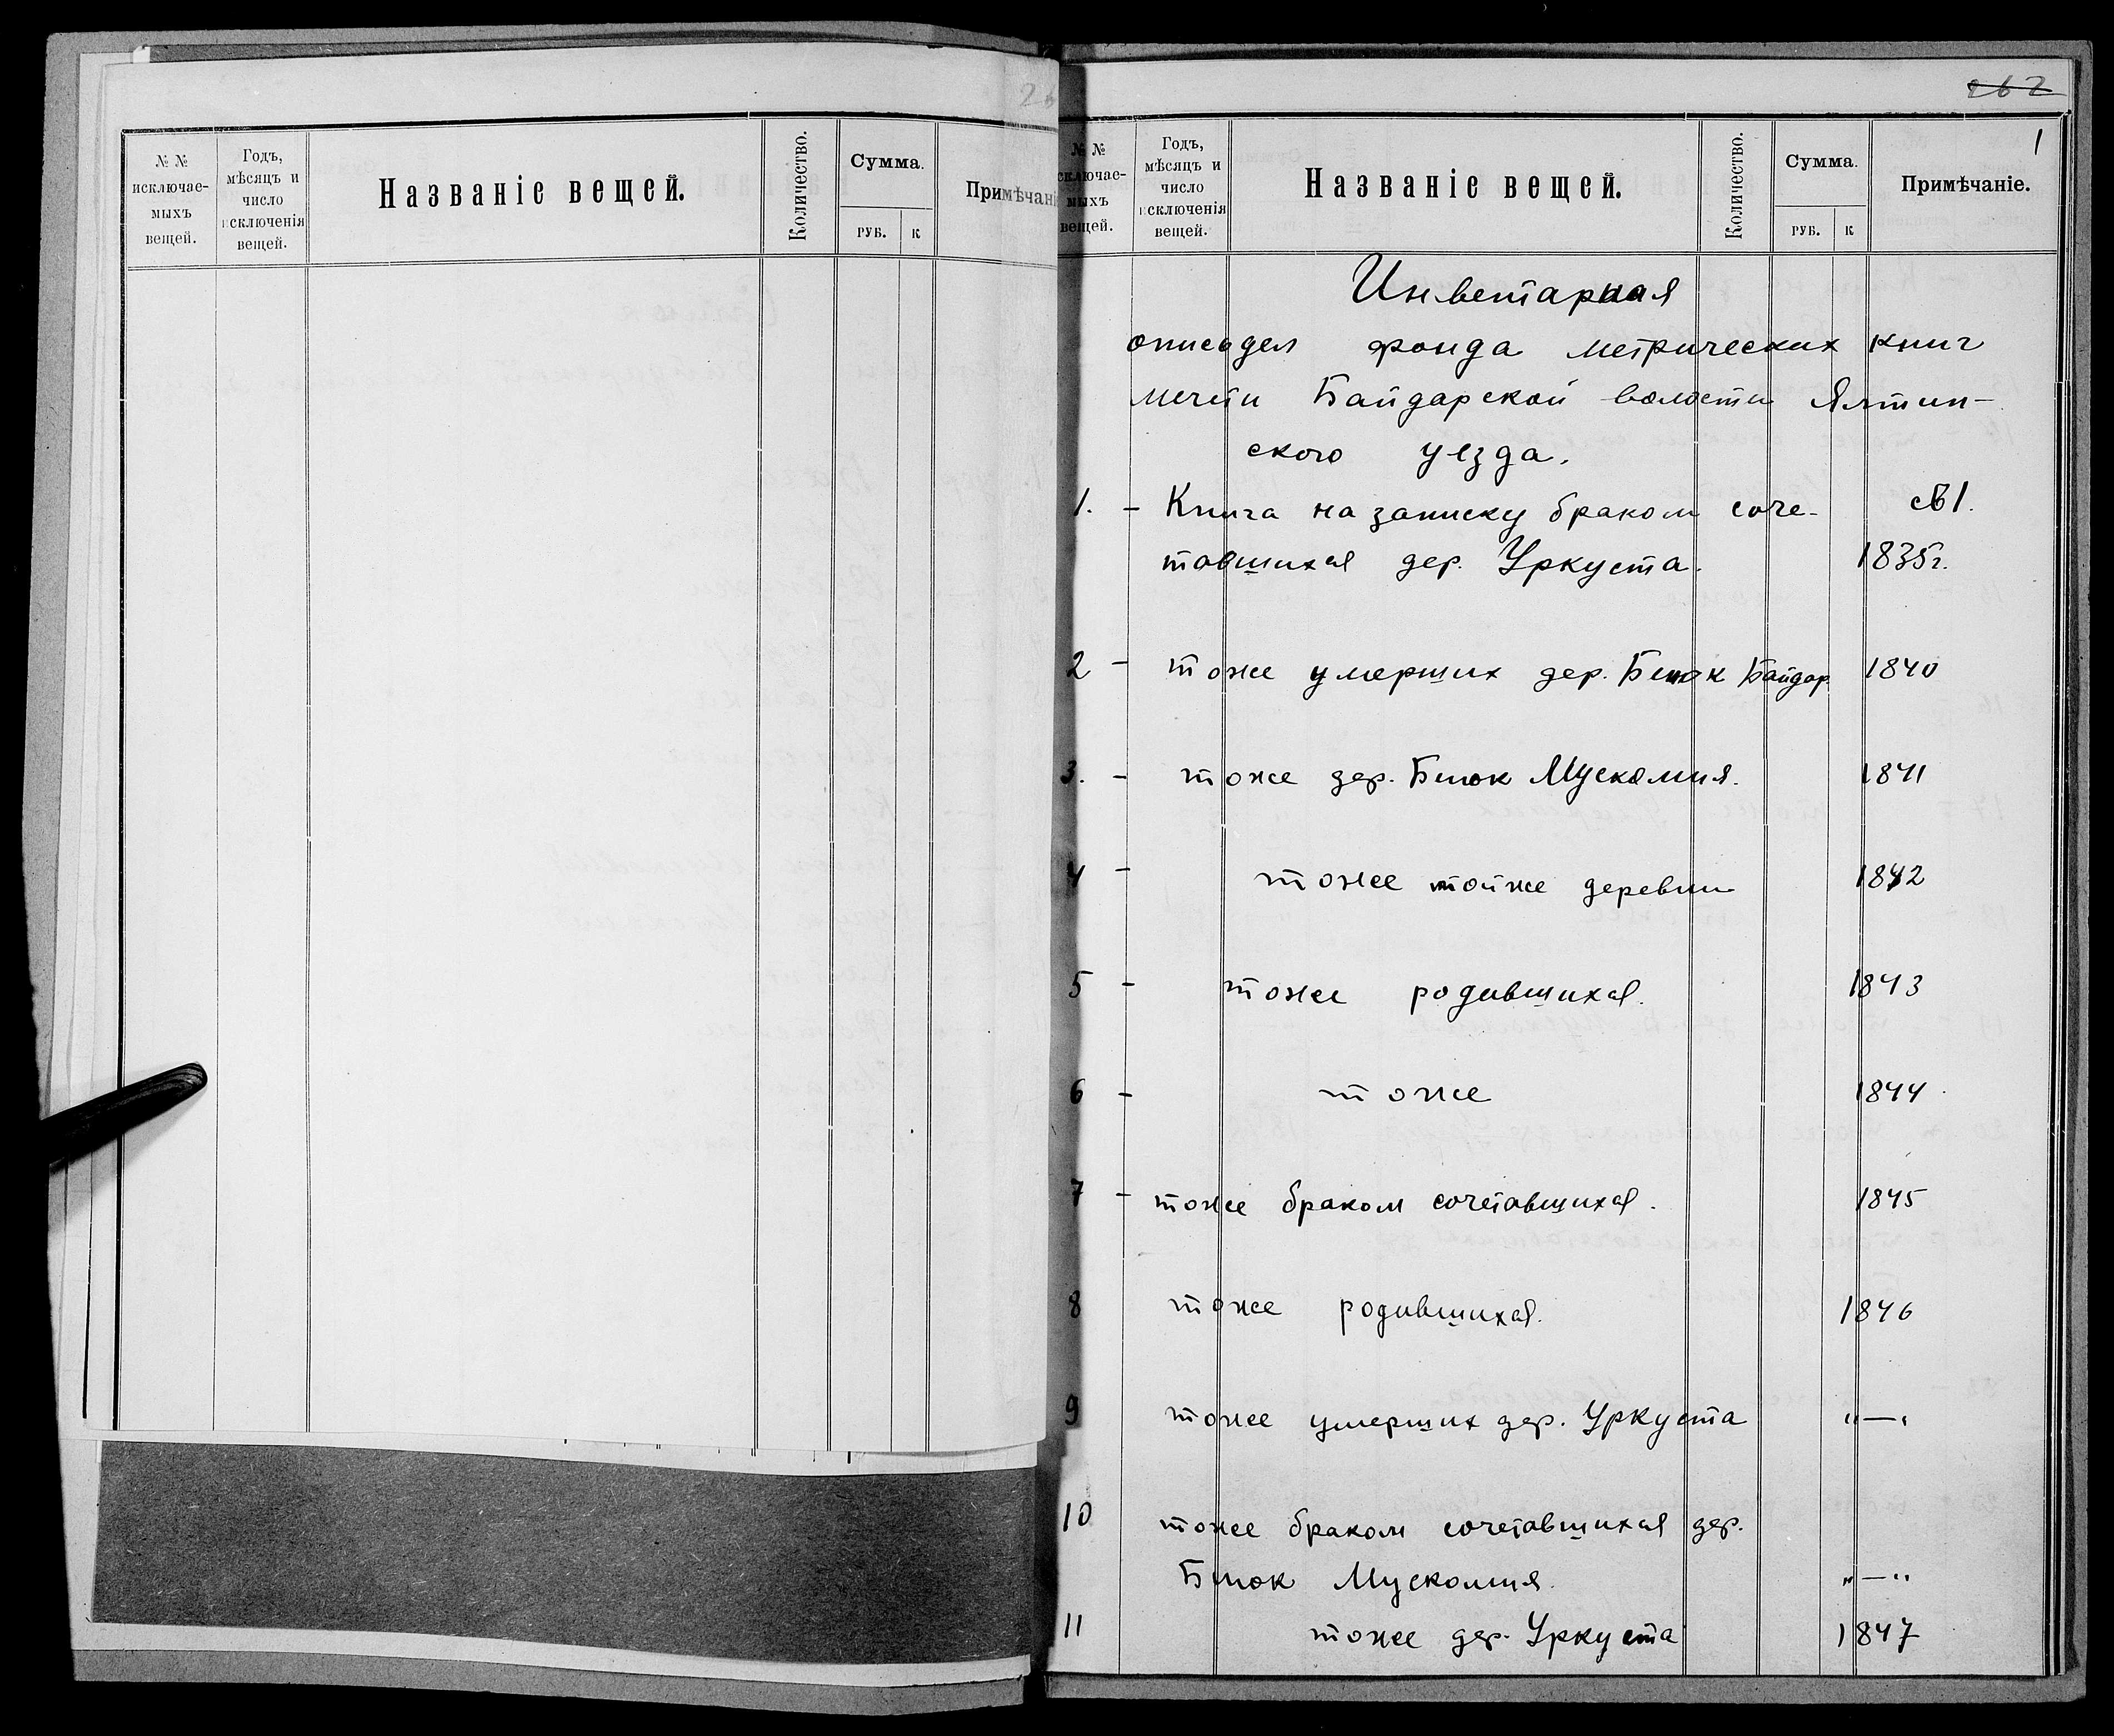 № №
исключае-
мыхъ
вещей.
Годъ,
мѣсяцъ и
число
исключенія
вещей.
Названіе вещей.
Количество.
Сумма.
РУБ. К
Примѣчані
262
1
№ №
сключае-
мыхъ
вещей.
Годъ,
мѣсяцъ и
число
исключенія
вещей.
Названіе вещей.
Количество.
Сумма.
РУБ. К
Примѣчаніе.
Инвентарная
опись дел фонда метрических книг
мечети Байдарской волости Ялтин-
ского уезда.
1. - Книга на записку браком соче- св 1.
тавшихся дер. Уркуста. 1835г.
2 - тоже умерших дер. Биюк Байдар. 1840
3. - тоже дер. Биюк Мускомия. 1841
4 - тоже тойже деревни 1842
5 - тоже родившихся. 1843
6 - тоже 1844
7 - тоже браком сочетавшихся. 1845
8 тоже родившихся. 1846
9 тоже умерших дер. Уркуста "—"
10 тоже браком сочетавшихся дер.
Биюк Мускомия. "—"
11 тоже дер. Уркуста 1847